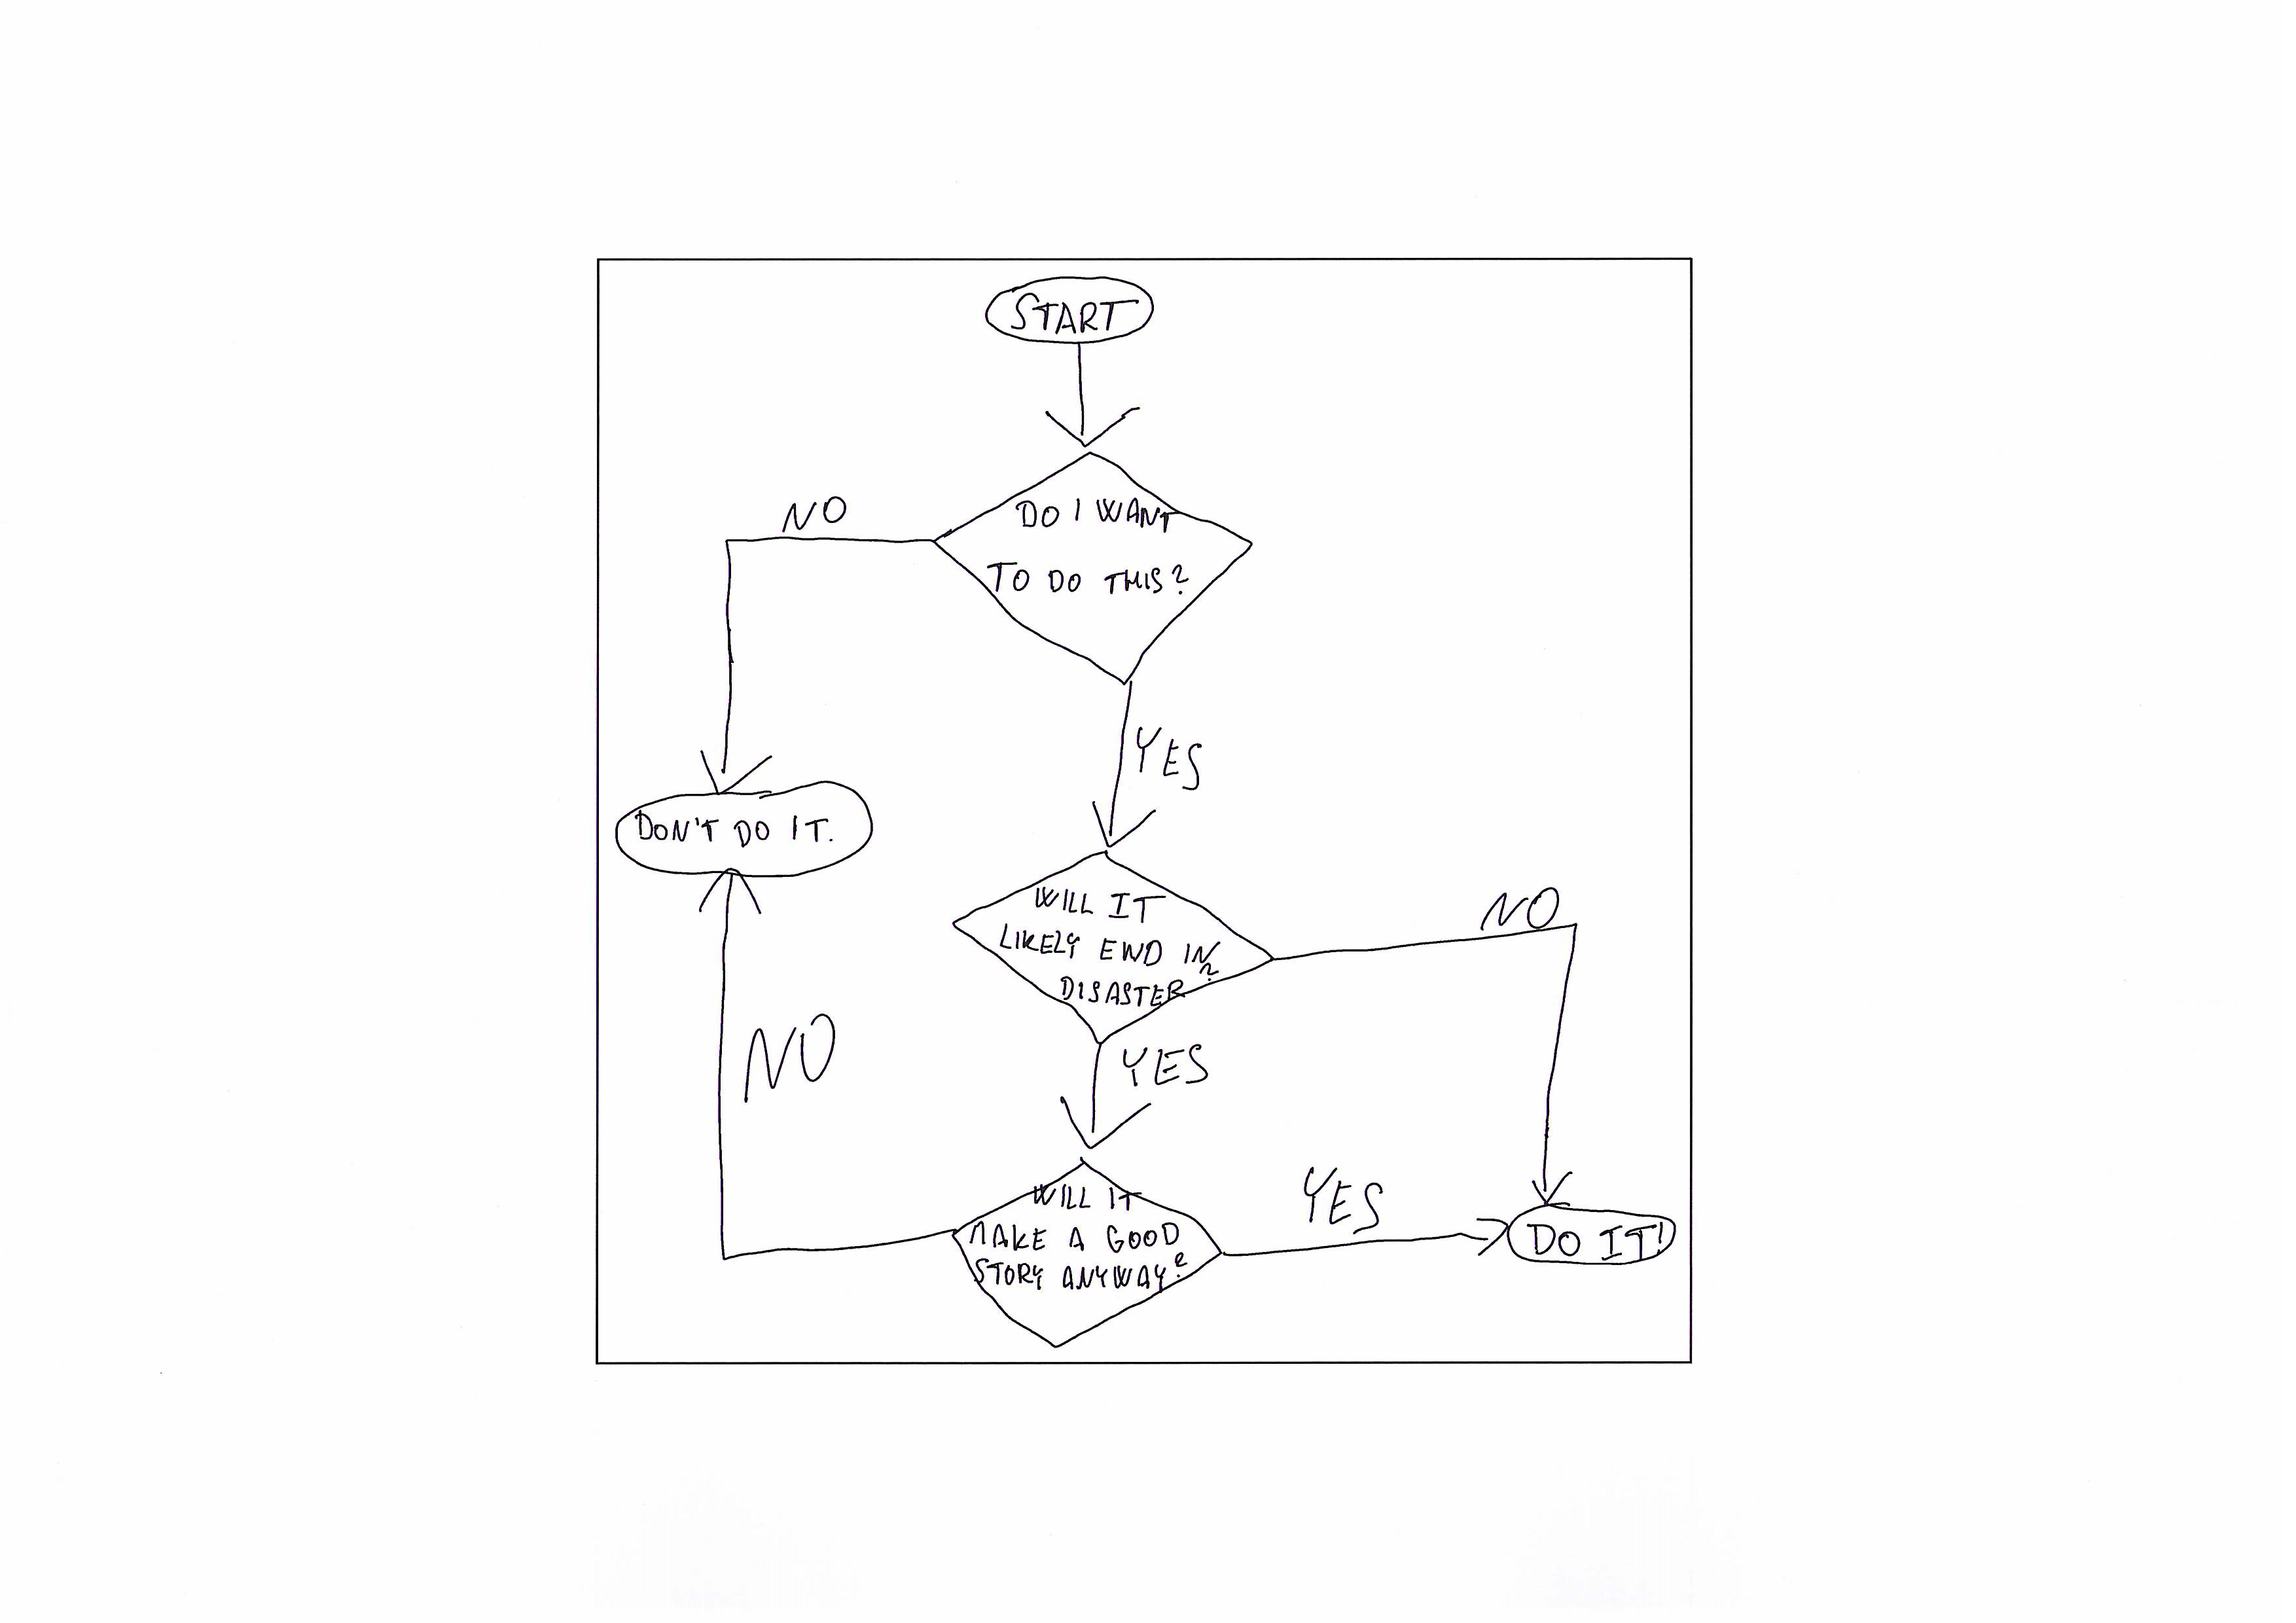 START
NO
DO I WANT
TO DO THIS?
YES
DON'T DO IT.
WILL IT
LIKELY END IN
DISASTER?
NO
NO
YES
WILL IT
MAKE A GOOD
STORY ANYWAY?
YES
DO IT!